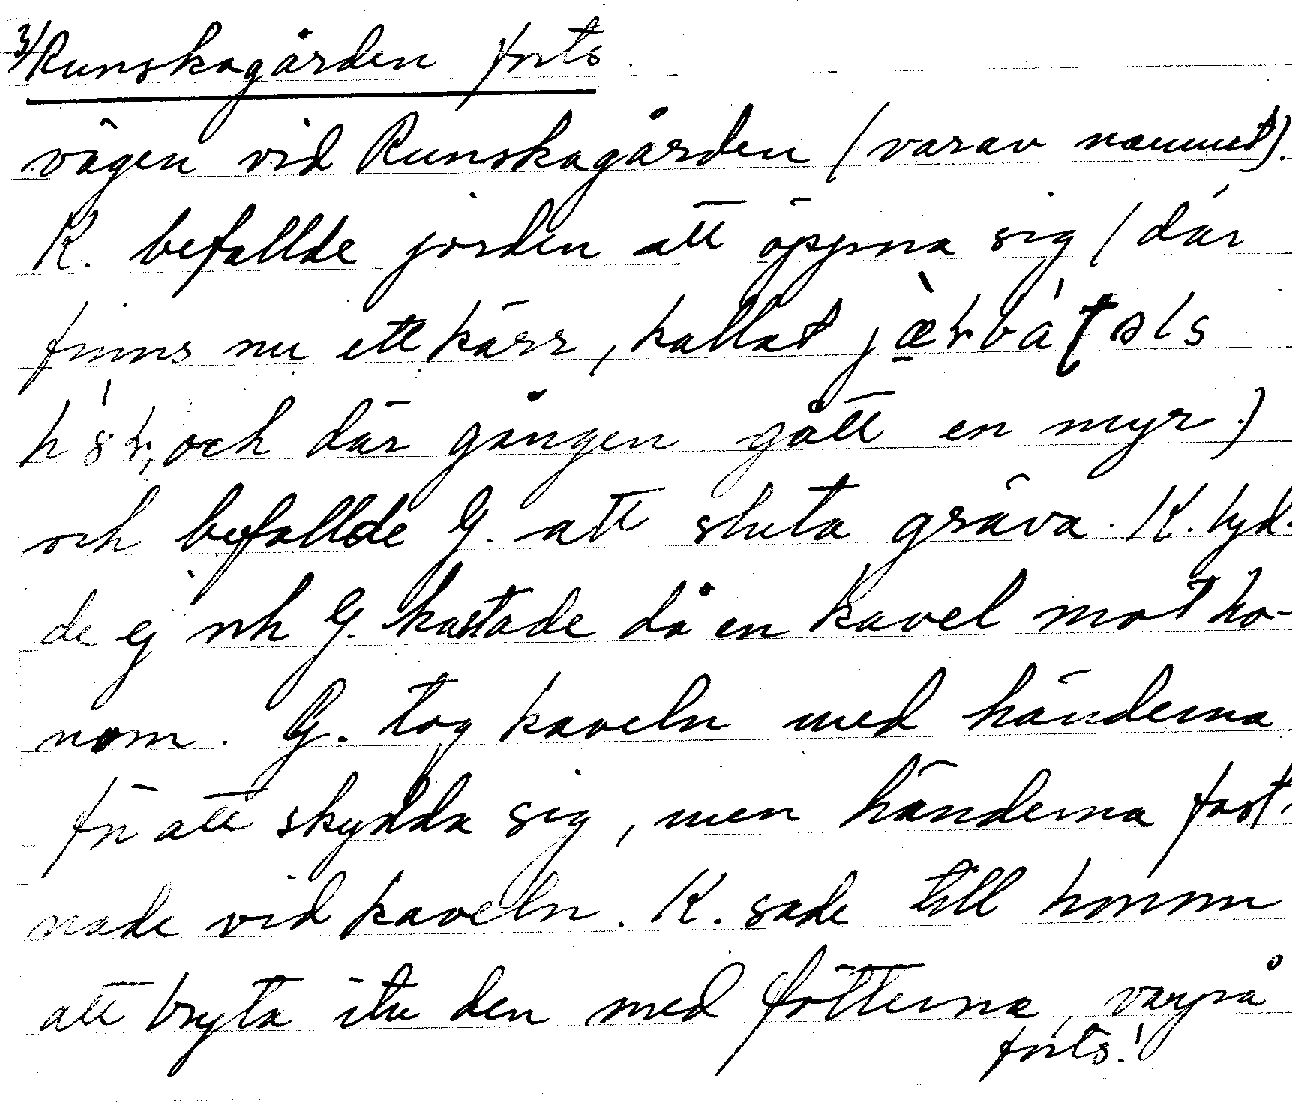 3/ Runskagården forts
vägen vid Runskagården (varav namnet).
K. befallde jorden att öppna sig (där
finns nu ett kärr, kallat
och där gången gått en myr.)
och befallde G. att sluta gräva. K. lyd-
de ej och G. kastade då en kavel mot ho-
nom. G. tog kaveln med händerna
för att skydda sig, men händerna fast-
nade vid kaveln. K. sade till honom
att bryta itu den med fötterna, varpå
forts!